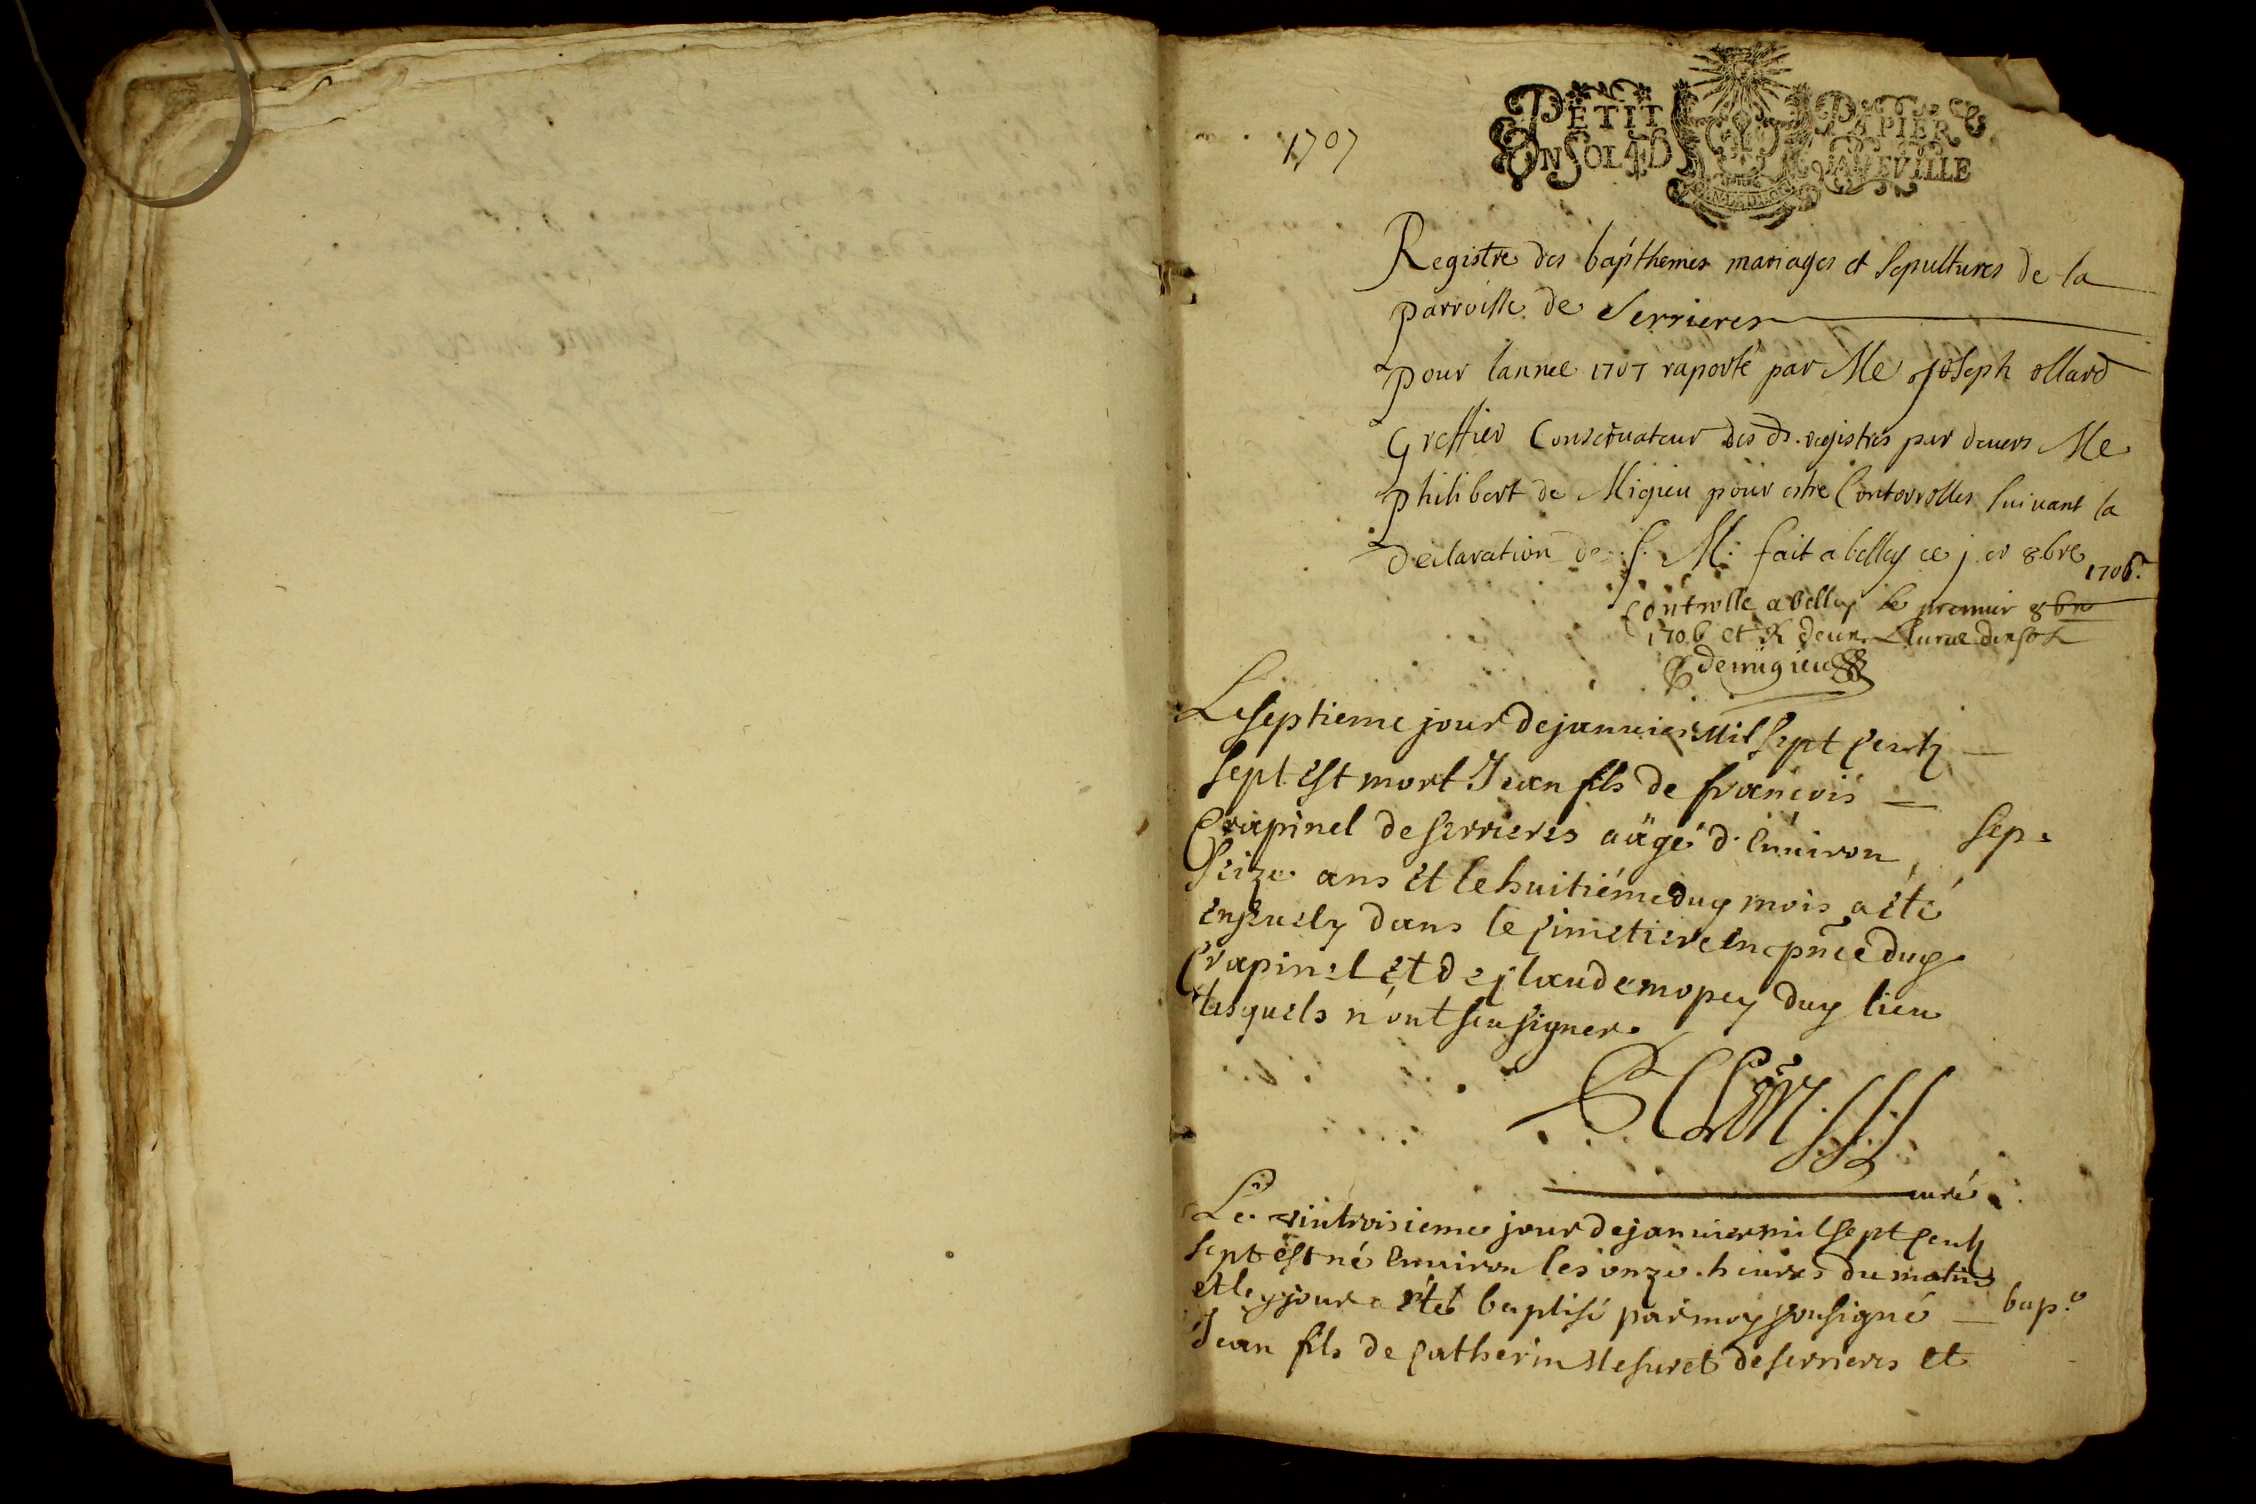 1707
PETIT PAPIER
UN SOL 4 D LA FEVILLE
Registre des bapthemes mariages et sepultures de la
parroisse de Serrieres
pour lannee 1707 raporté par Me joseph ollard
Greffier Conservateur des ds. registres par devers Me
philibert de Migieu pour estre Controolles suivant la
declaration de S. M. fait a belley ce j er 8bre 1706.
Controlle a belley le premier 8bre
1706 et R deux
demigieu
Le septieme jour de januier Mil sept Centz
sept est mort Jean fils de francois
Crapinel de serrieres aägé d'enuiron
seize ans Et le huitiéme duy mois a été
enseuely dans le Cimetiere en pñce duy
Crapinel Et de Claude mopey duy lieu
lesquels n'ont sceu signer.
sep.
curé
Le vintroisieme jour de januier mil sept Centz
sept est né enuiron les onze heures du matin
et le y jour a été baptisé par moy sousigné
Jean fils de Catherin Mesuret de serrieres et
bap.e